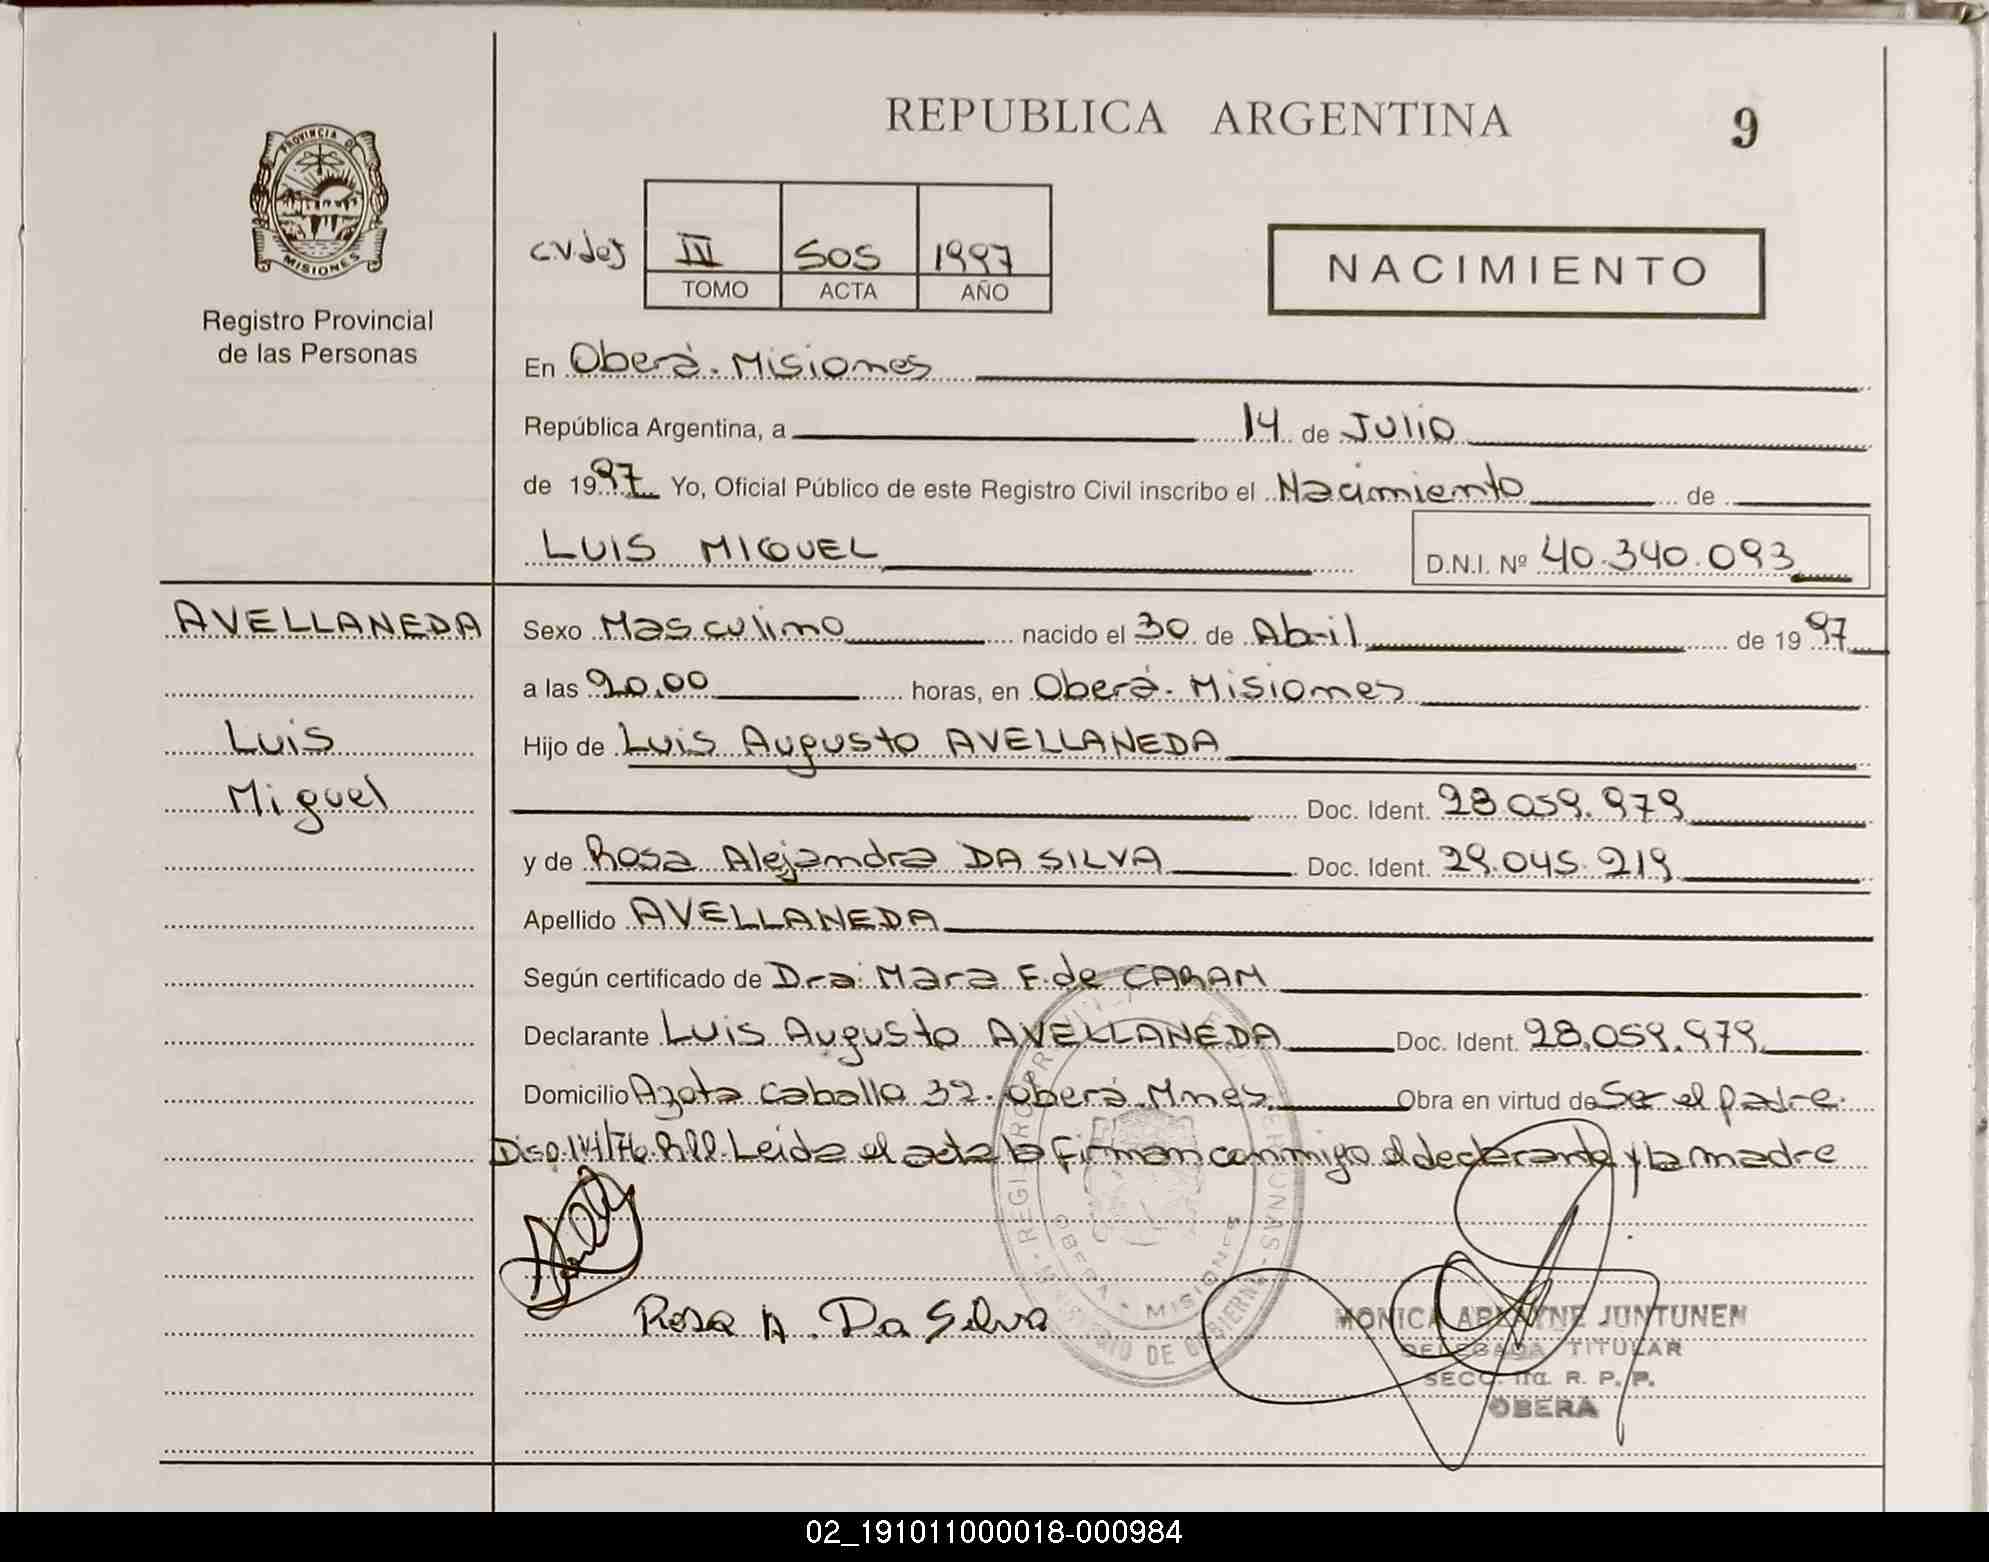 REPUBLICA ARGENTINA
9
PROVINCIA DE
MISIONES
Registro Provincial
de las Personas
III 505 1997
TOMO ACTA AÑO
NACIMIENTO
En Oberá. Misiones
República Argentina, a 14 de Julio
de 1997 Yo, Oficial Público de este Registro Civil inscribo el Nacimiento de
LUIS MIGUEL
D.N.I. Nº 40.340.093
AVELLANEDA
Luis
Miguel
Sexo Masculino nacido el 30 de Abril de 1997
a las 20.00 horas, en Oberá. Misiones
Hijo de Luis Augusto AVELLANEDA
Doc. Ident. 28.059.979
y de Rosa Alejandra DA SILVA Doc. Ident. 29.045.219
Apellido AVELLANEDA
Según certificado de Dra: Mara F. de CARAM
Declarante Luis Augusto AVELLANEDA Doc. Ident. 28.059.979
Domicilio Azota Caballo 32. Oberá. Mnes. Obra en virtud de Ser el padre.
Disp. 141/76. Leida el acta la firman conmigo el declarante y la madre
Rosa A. Da Silva
OBERA · MISIONES
MINISTERIO DE GOBIERNO
MONICA JUNTUNEN
DELEGADA TITULAR
SECC. R. P. P.
OBERA
02_191011000018-000984